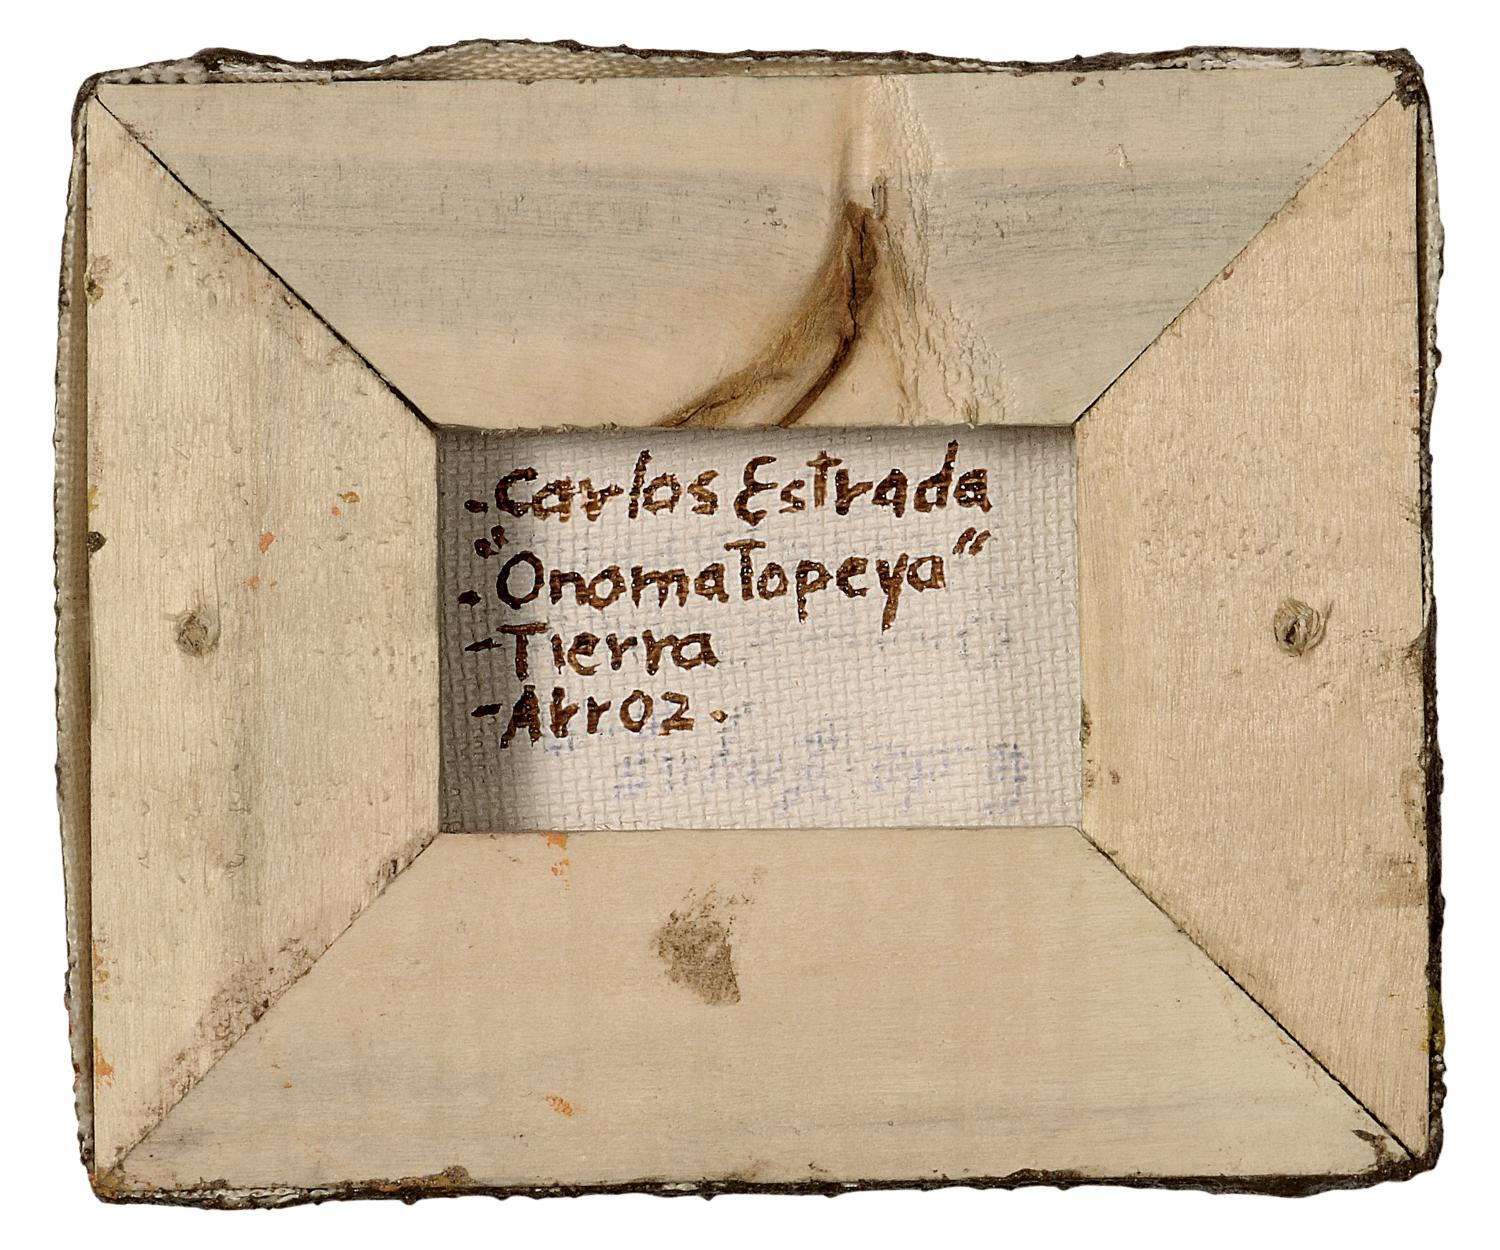 .Carlos Estrada
."Onomatopeya"
-Tierra
-Arroz.